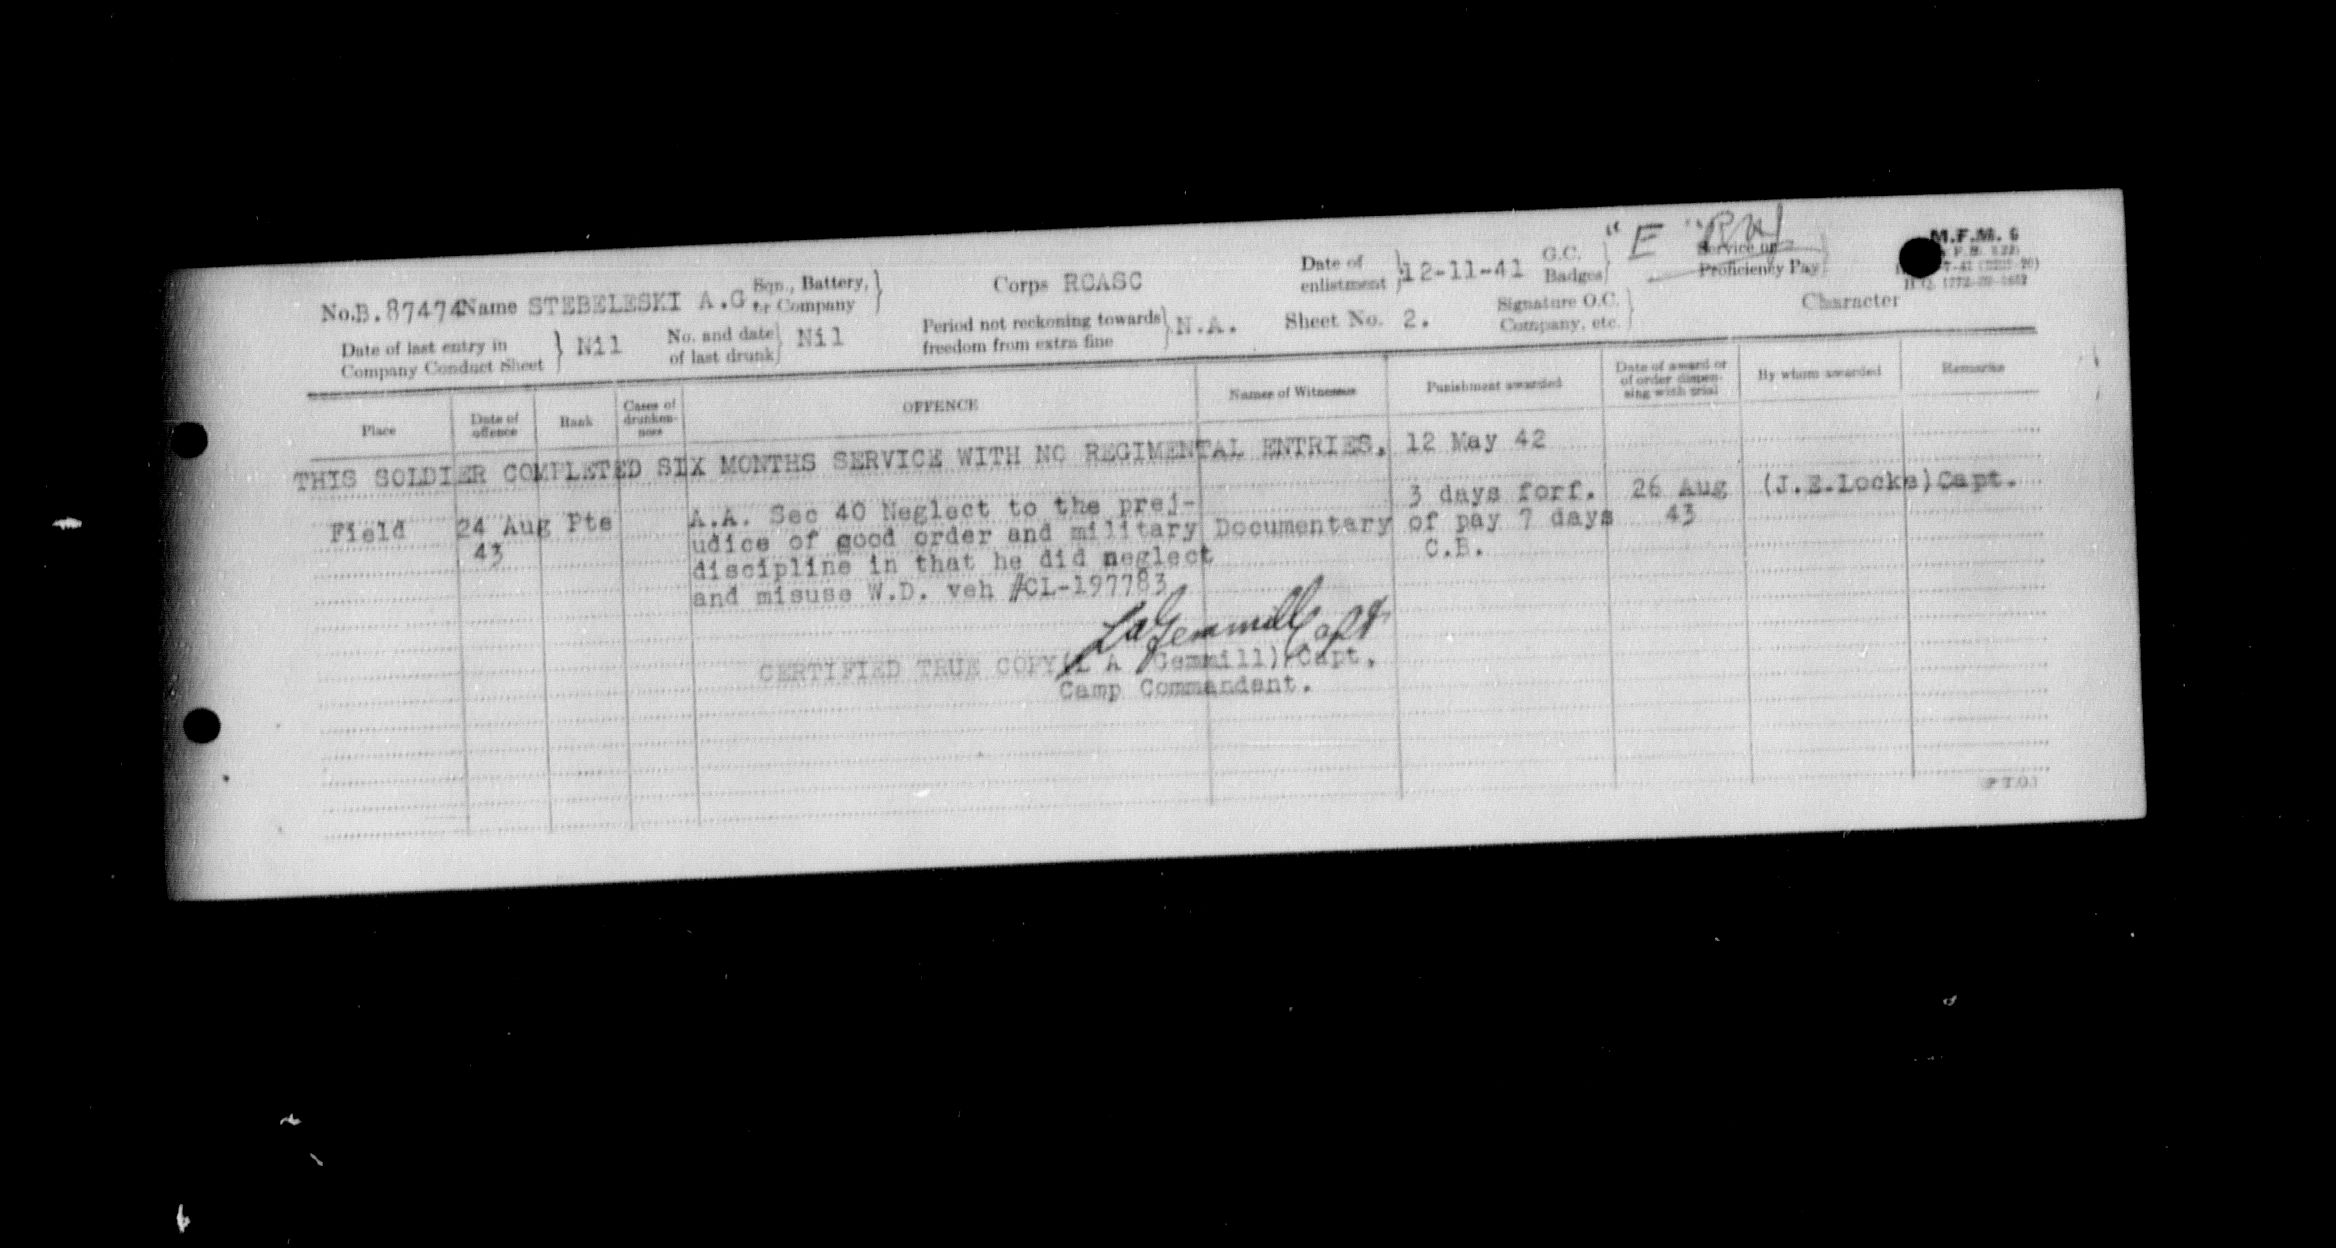 No. B.87474 Name STEBELESKI A.G Sqn., Battery, or Company Corps RCASC Date of enlistment 12-11-41 G.C. Badges "E" Service or Proficiency Pay M.F.M. 6
Date of last entry in Company Conduct Sheet Nil No. and date of last drunk Nil Period not reckoning towards freedom from extra fine N.A. Sheet No. 2. Signature O.C. Company, etc. Character
Place Date of offence Rank Cases of drunkenness OFFENCE Names of Witnesses Punishment awarded Date of award or of order dispensing with trial By whom awarded Remarks
THIS SOLDIER COMPLETED SIX MONTHS SERVICE WITH NO REGIMENTAL ENTRIES. 12 May 42
Field 24 Aug Pte A.A. Sec 40 Neglect to the prej- 3 days forf. 26 Aug (J.E.Locke) Capt.
43 udice of good order and military Documentary of pay 7 days 43
discipline in that he did neglect C.B.
and misuse W.D. veh #CL-197783
LAGemmill Capt
CERTIFIED TRUE COPY (L A Gemmill) Capt.
Camp Commandant.
P.T.O.